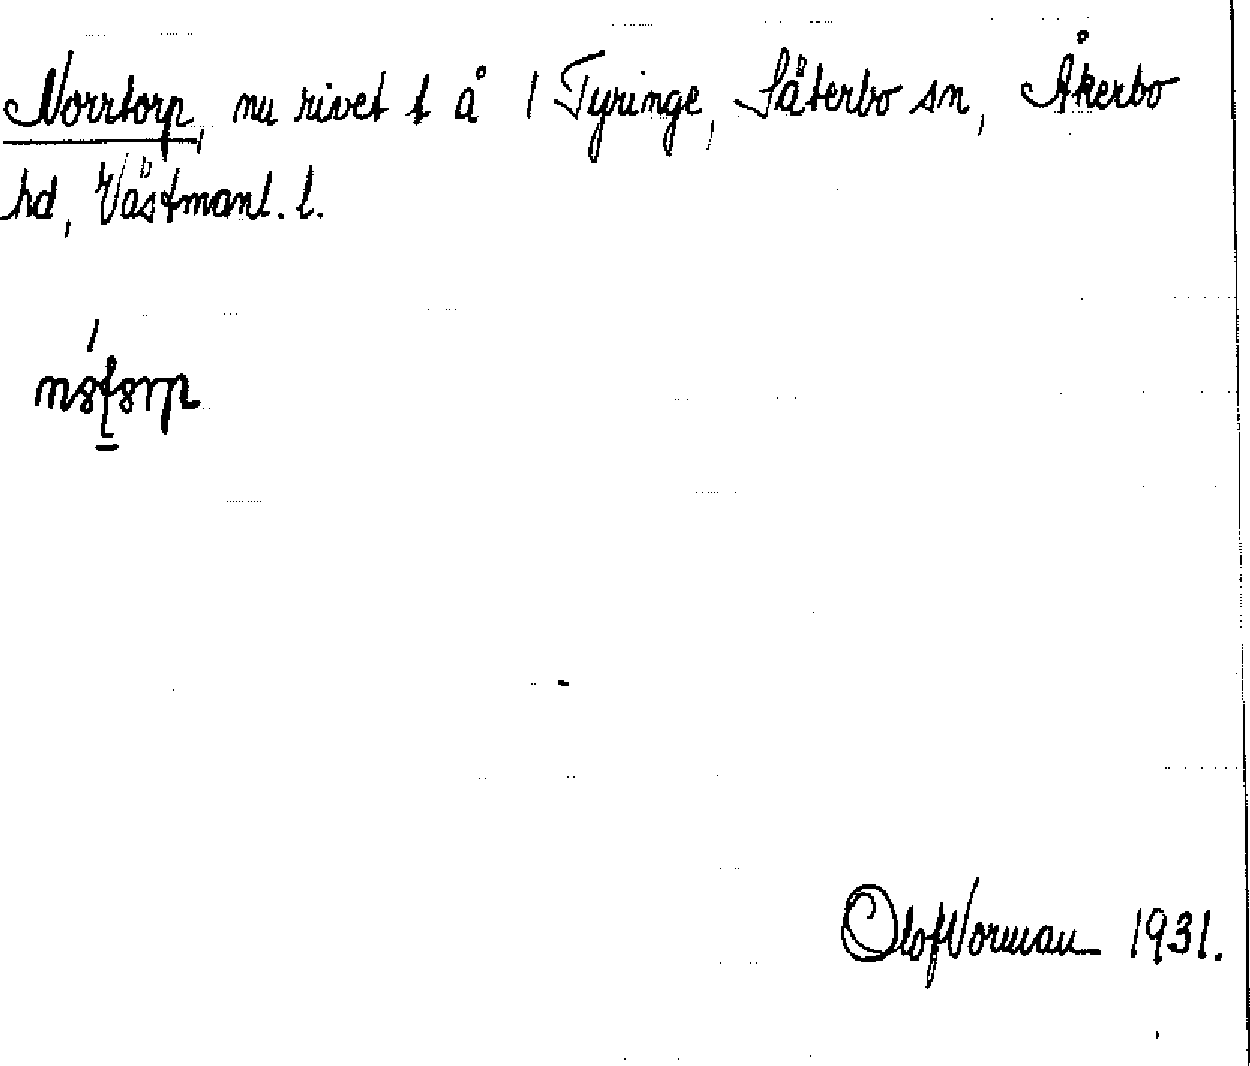 Norrtorp, nu rivet t å 1 Tyringe, Säterbo sn, Åkerbo
hd, Västmanl. l.
Olof Norman 1931.